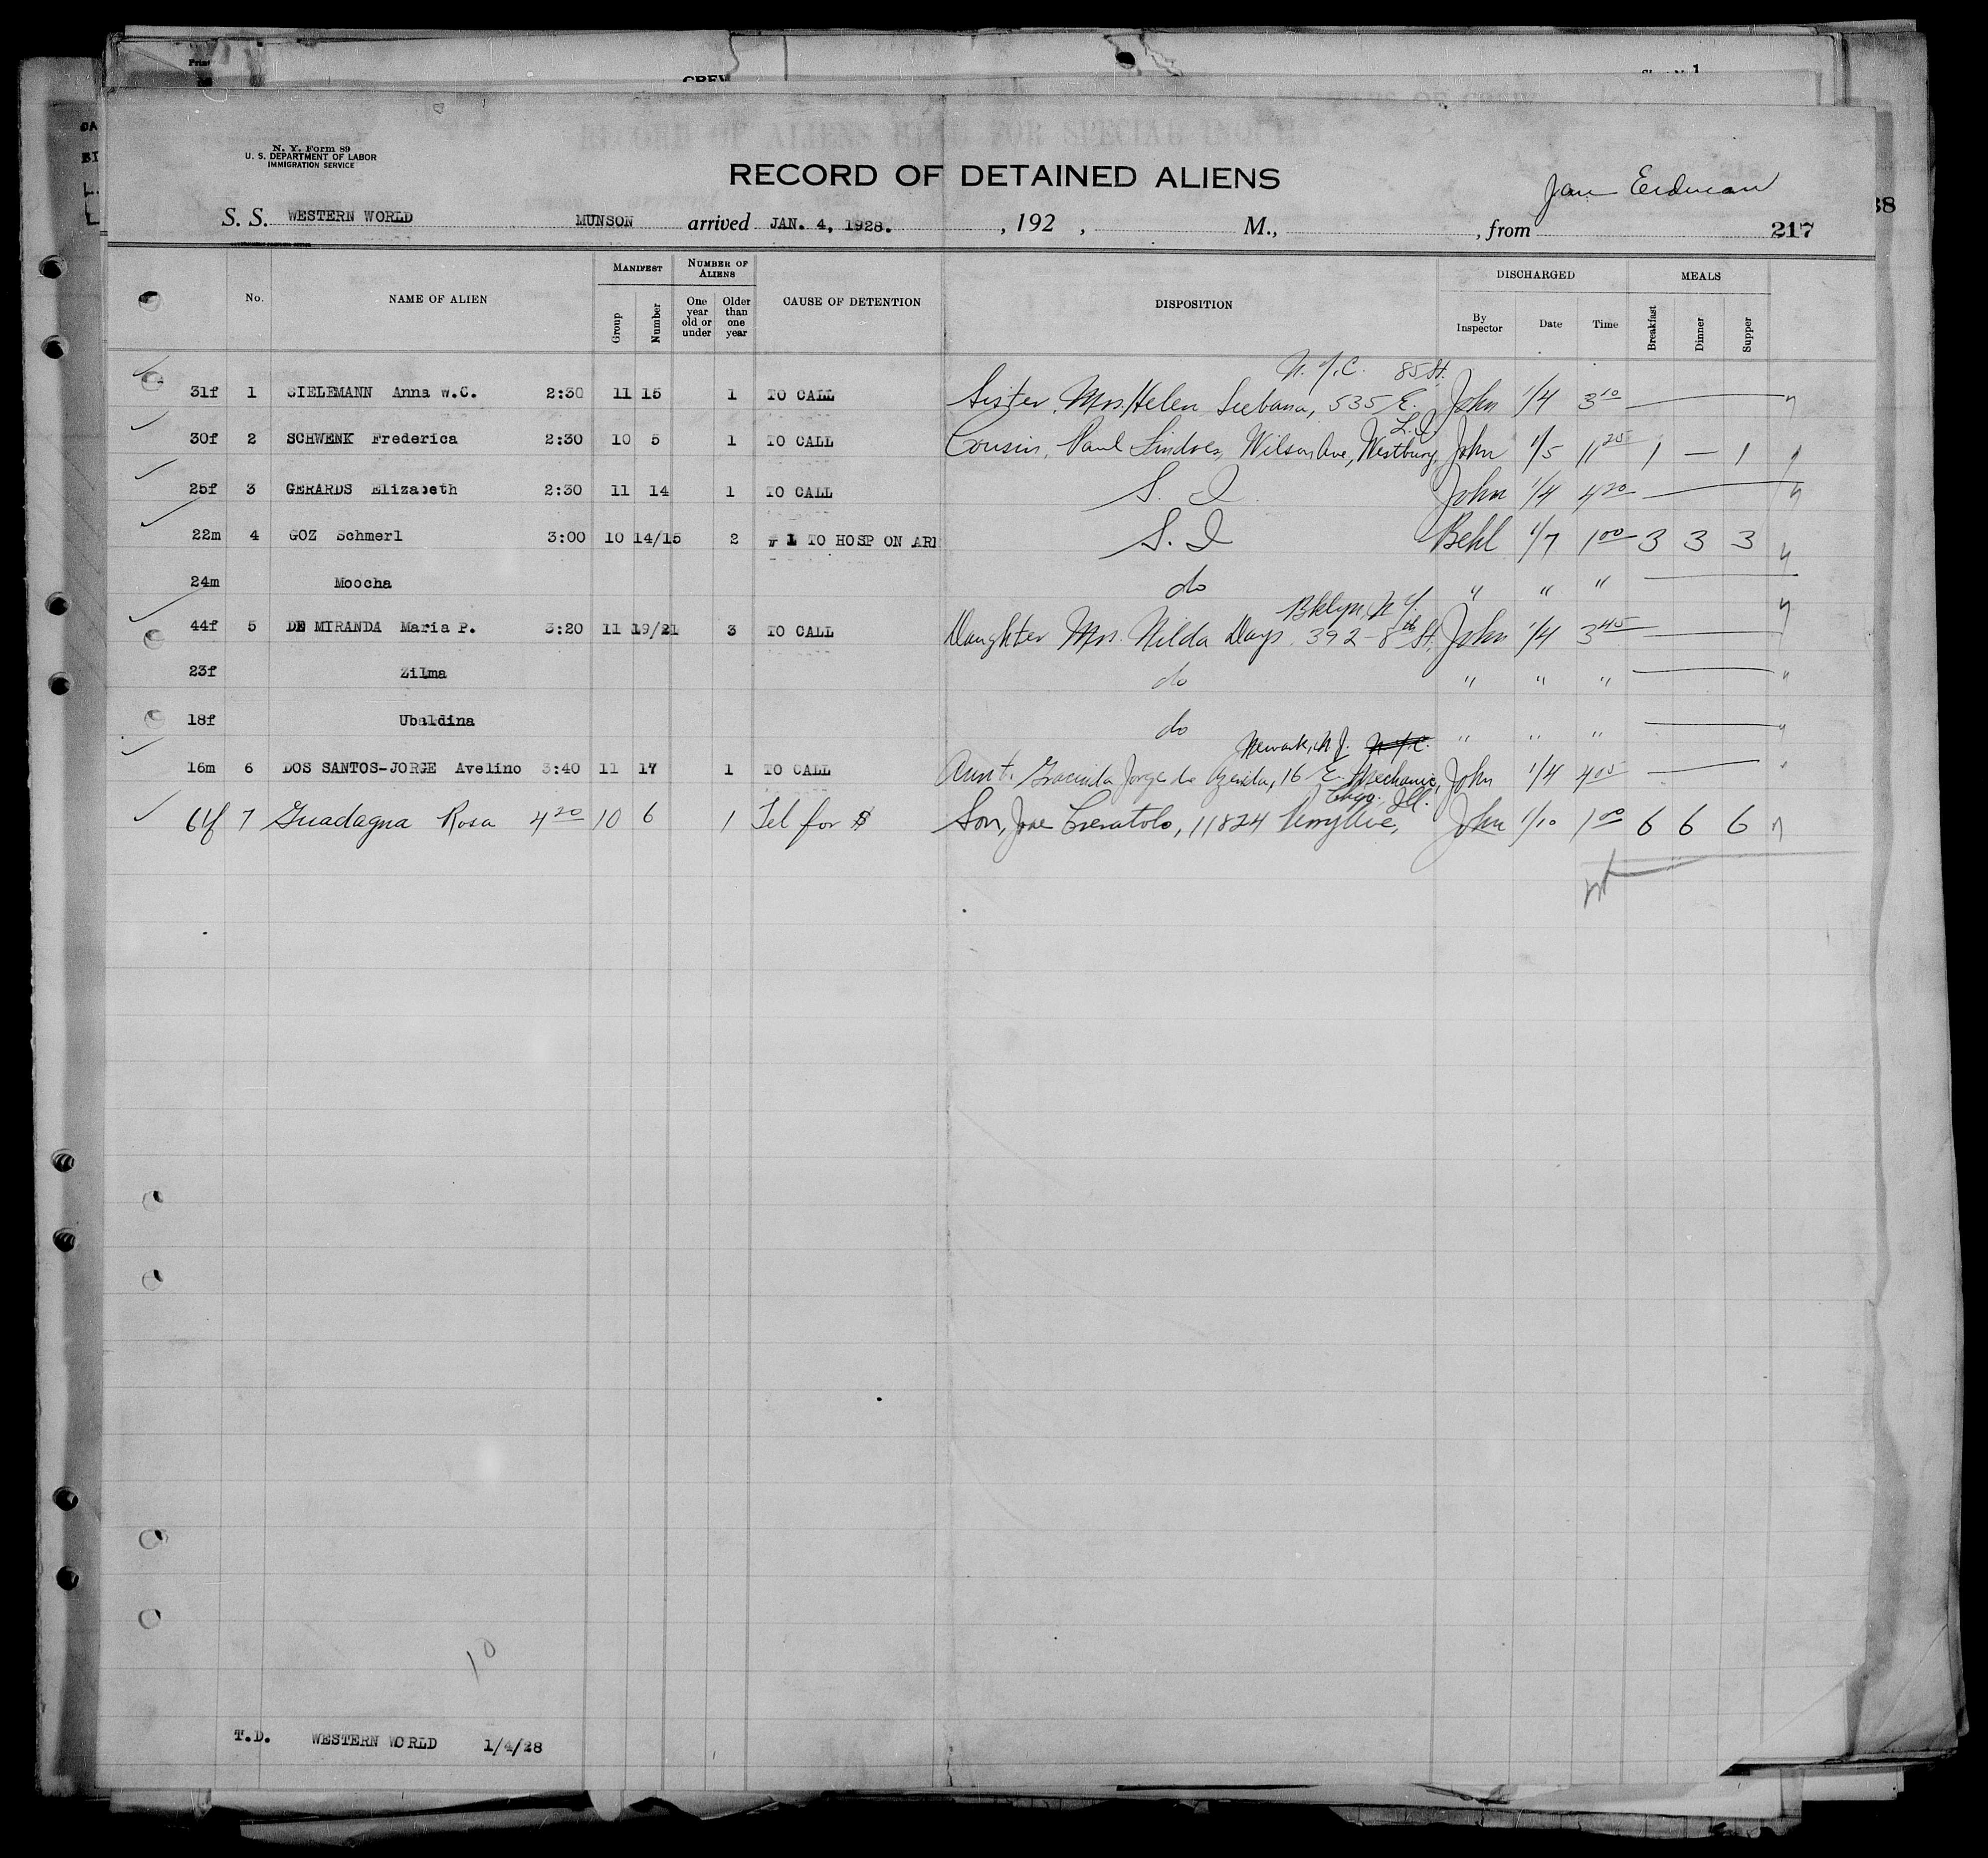 N. Y. Form 89
U. S. DEPARTMENT OF LABOR
IMMIGRATION SERVICE
RECORD OF DETAINED ALIENS
S. S. WESTERN WORLD MUNSON arrived JAN. 4, 1928. , 192 , M., , from 217
No. NAME OF ALIEN MANIFEST Group Number NUMBER OF ALIENS One year old or under Older than one year CAUSE OF DETENTION DISPOSITION DISCHARGED By Inspector Date Time MEALS Breakfast Dinner Supper
N.Y.C. 85 St.
31f 1 SIELEMANN Anna W.C. 2:30 11 15 1 TO CALL Sister, Mrs. Helen 535 E. John 1/4 3 10
L.I.
30f 2 SCHWENK Frederica 2:30 10 5 1 TO CALL Cousin, Paul Wilson Ave, Westbury, John 1/5 11 25 1 — 1
25f 3 GERARDS Elizabeth 2:30 11 14 1 TO CALL S. I. John 1/4 4 20
22m 4 GOZ Schmerl 3:00 10 14/15 2 # 1 TO HOSP ON ARR S. I Behl 1/7 1 00 3 3 3
24m Moocha do " " "
Bklyn, N.Y.
44f 5 DE MIRANDA Maria P. 3:20 11 19/21 3 TO CALL Daughter Mrs. Nilda Days. 392-8th St. John 1/4 3 45
23f Zilma do " " "
18f Ubaldina do " " "
Newark, N.J. N.Y.C.
16m 6 DOS SANTOS-JORGE Avelino 3:40 11 17 1 TO CALL Aunt. Jorge 16 E. Mechanic, John 1/4 4 05
Chgo. Ill.
64f 7 Guadagna Rosa 4 20 10 6 1 Tel for $ Son, 11824 John 1/10 1 00 6 6 6
10
T.D. WESTERN WORLD 1/4/28